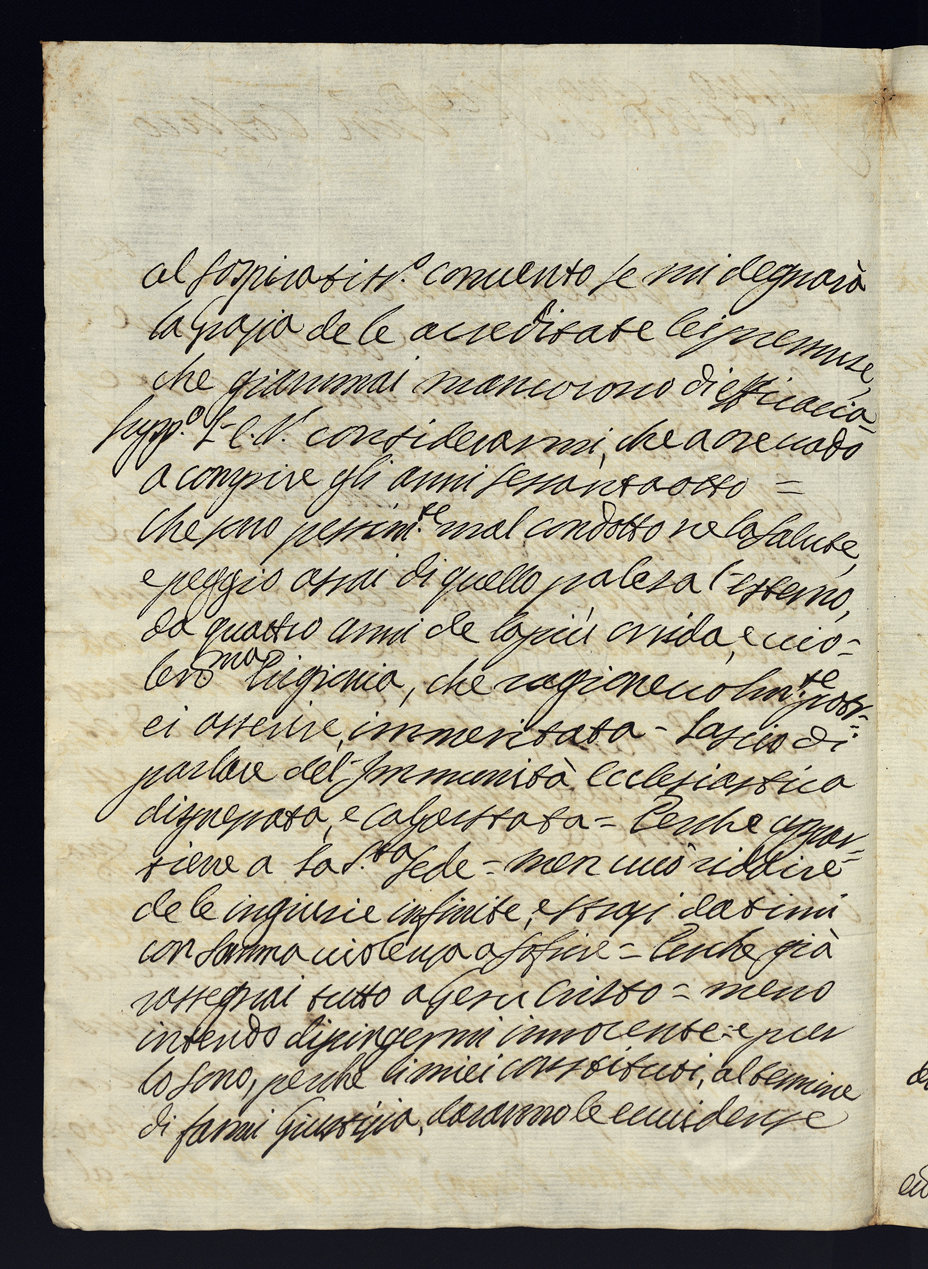 al sospiratiss.o convento se mi degnarà
la grazia de le accreditate lei premure,
che giammai mancorono di efficacia
Supp.o l'E. V. considerarmi, che aore vado
a compire gli anni sessantaotto =
che sono pessim.te mal condotto ne la salute,
e peggio assai di quello palesa l'esterno,
da quattro anni de la più cruda, e vio-
lent.ma Prigionia, che ragionevolm.te potr-
ei asserire, immeritata - Lascio di
parlare del'Immunità Ecclesiastica
disprezata, e calpestata = Perche appar-
tiene a la S.ta Sede = men vuò ridire
de le ingiurie infinite, e strazi datimi
con somma violenza a soffrire = Perche già
rassegnai tutto a Gesu Cristo = meno
intendo dipingermi innocente: e pur
lo sono, perchè li miei constituti, al termine
di farmi Giustizia, daranno le evvidenze